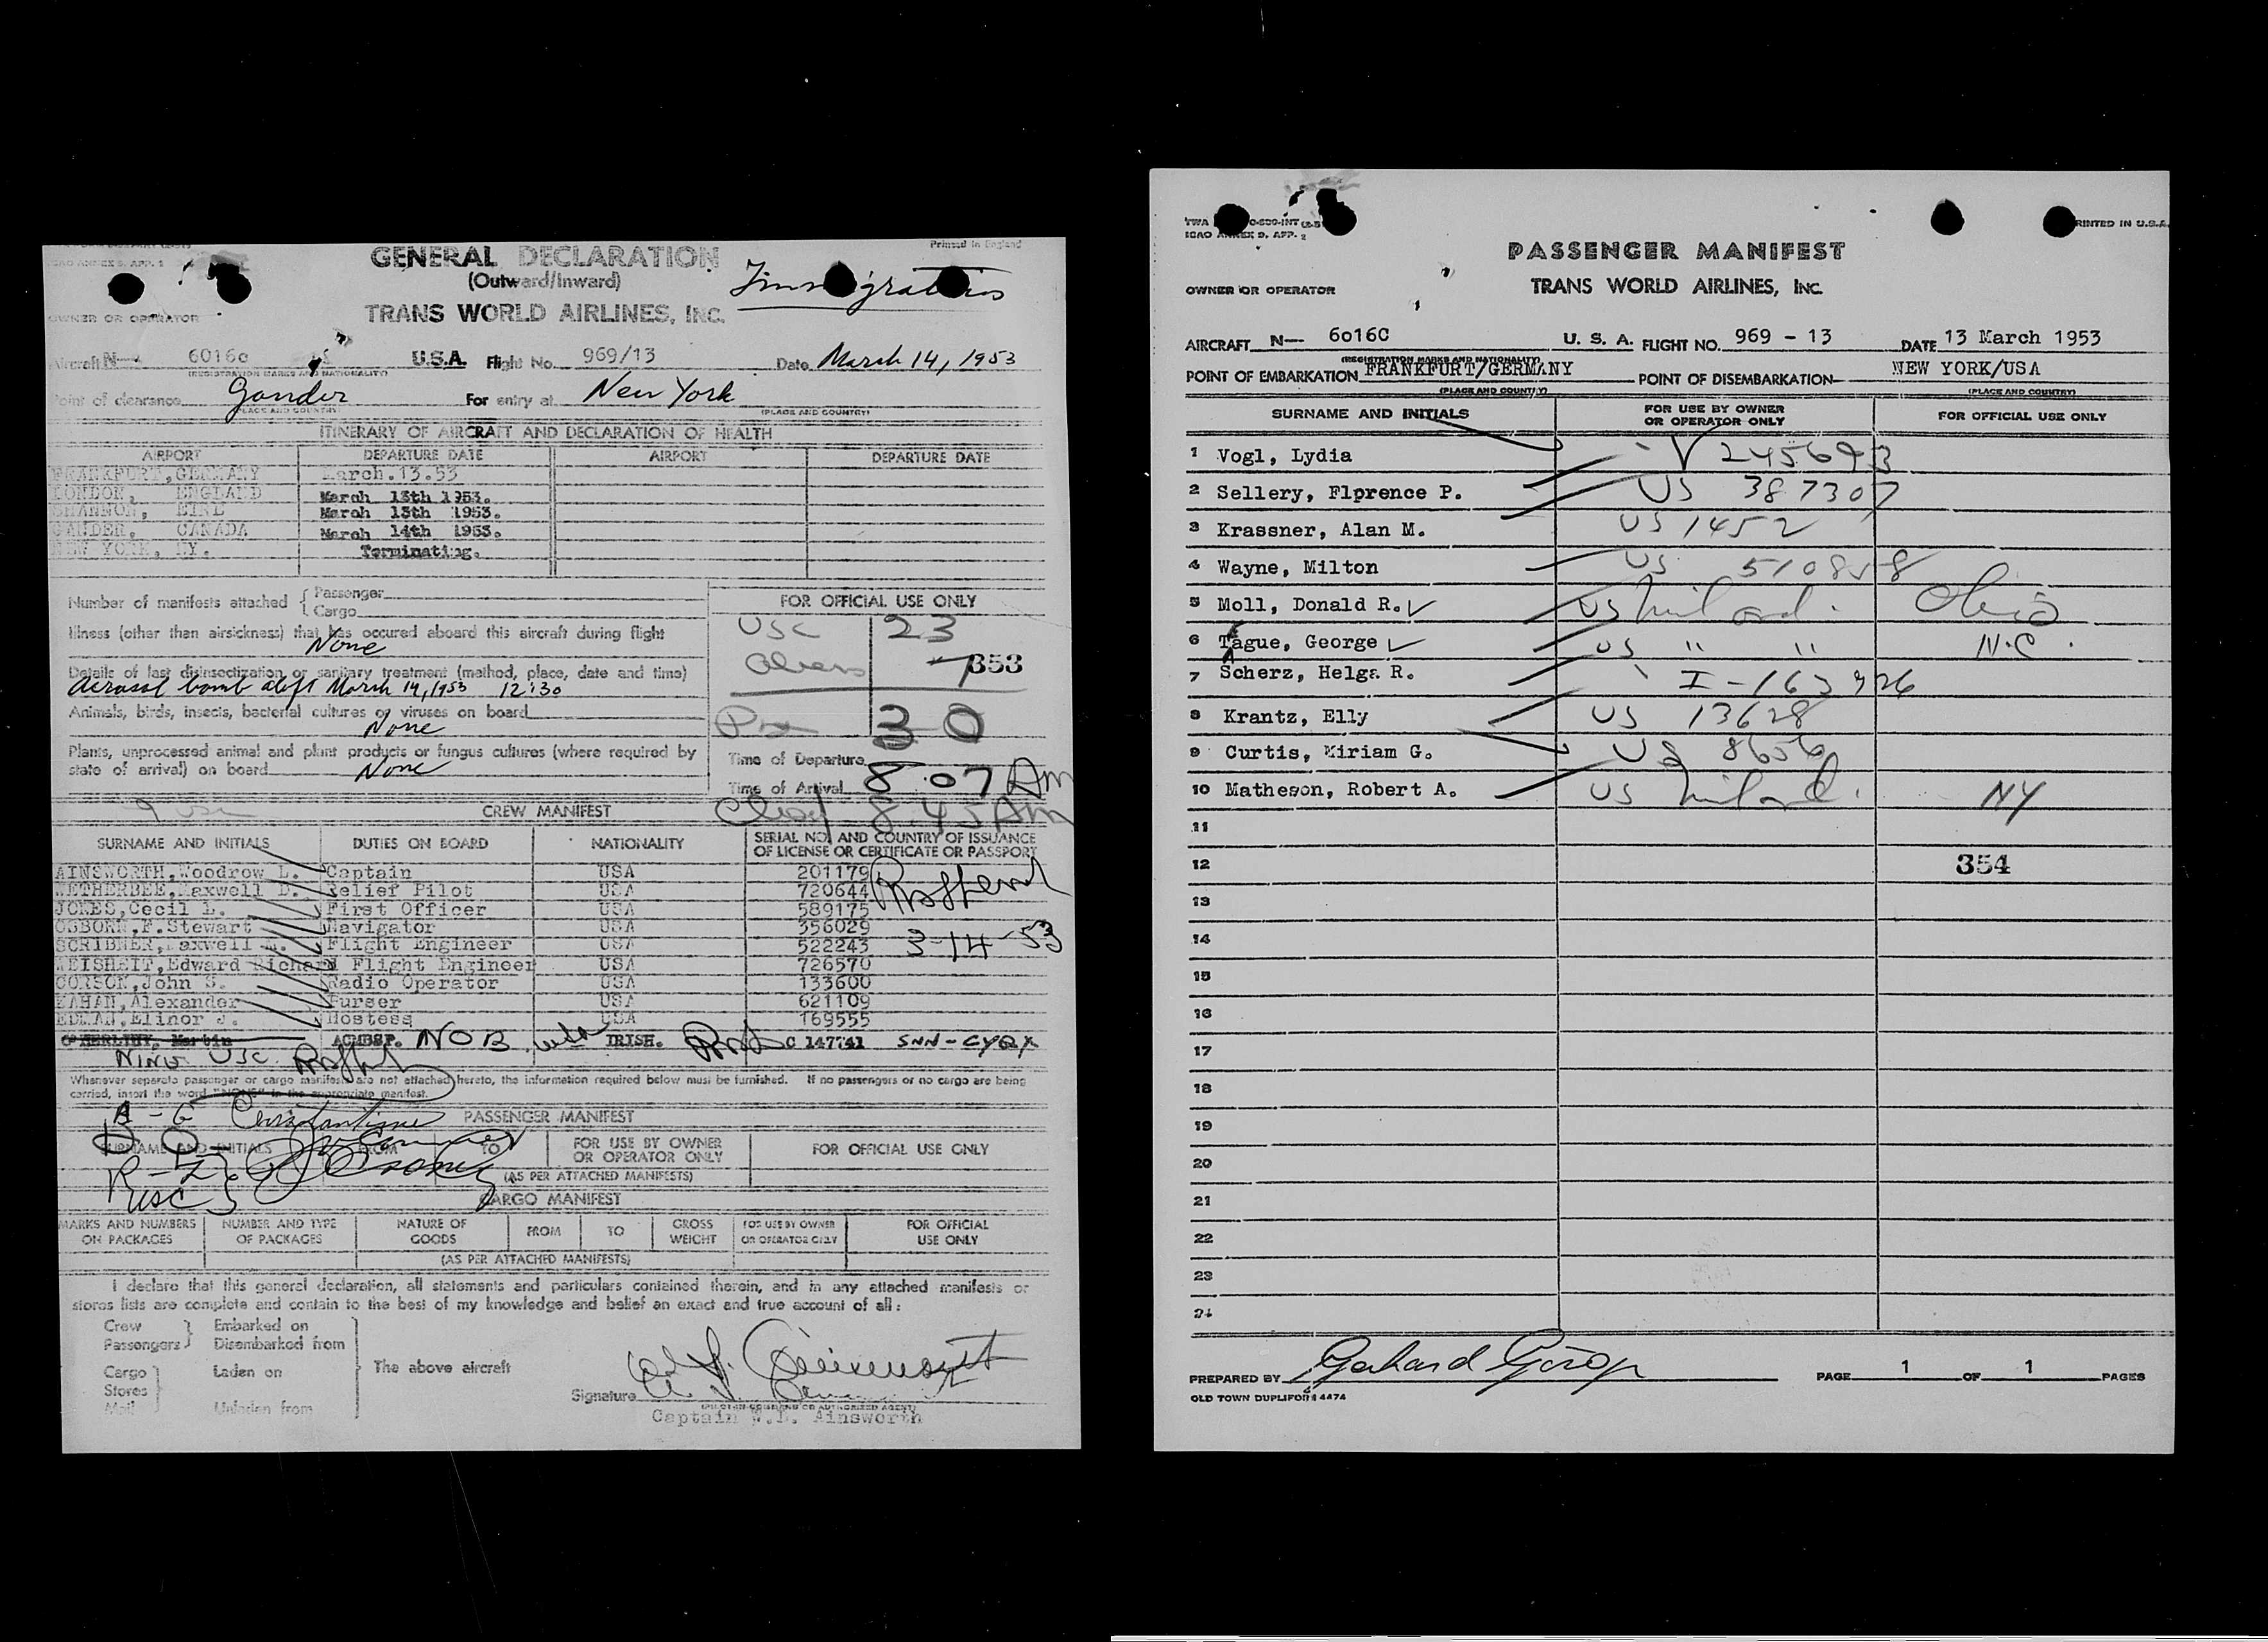 ICAO ANNEX 9. APP. 1
Printed in England
GENERAL DECLARATION
(Outward/Inward)
Immigration
OWNER OR OPERATOR
TRANS WORLD AIRLINES, INC.
Aircraft N— 6016c U.S.A. Flight No. 969/13 Date March 14, 1953
(REGISTRATION MARKS AND NATIONALITY)
Point of clearance Gander For entry at New York
(PLACE AND COUNTRY) (PLACE AND COUNTRY)
ITINERARY OF AIRCRAFT AND DECLARATION OF HEALTH
AIRPORT DEPARTURE DATE AIRPORT DEPARTURE DATE
FRANKFURT, GERMANY March.13.53
LONDON, ENGLAND March 13th 1953.
SHANNON, EIRE March 13th 1953.
GANDER, CANADA March 14th 1953.
NEW YORK, NY. Terminating.
Number of manifests attached { Passenger
Cargo
FOR OFFICIAL USE ONLY
USC 23
Aliens 7
353
30
Illness (other than airsickness) that has occured aboard this aircraft during flight
None
Details of last disinsectization or sanitary treatment (method, place, date and time)
Aerosol bomb aloft March 14, 1953 12:30
Animals, birds, insects, bacterial cultures or viruses on board
None
Plants, unprocessed animal and plant products or fungus cultures (where required by
state of arrival) on board None
Time of Departure
Time of Arrival 8:07 AM
8:45 AM
CREW MANIFEST
SURNAME AND INITIALS DUTIES ON BOARD NATIONALITY SERIAL NO. AND COUNTRY OF ISSUANCE
OF LICENSE OR CERTIFICATE OR PASSPORT
AINSWORTH, Woodrow L. Captain USA 201179
WETHERBEE, Maxwell D. Relief Pilot USA 720644
JONES, Cecil L. First Officer USA 589175
OSBORN, F. Stewart Navigator USA 356029
SCRIBNER, Maxwell M. Flight Engineer USA 522243
3-14-53
WEISHEIT, Edward Richard Flight Engineer USA 726570
CORSON, John S. Radio Operator USA 133600
KAHAN, Alexander Purser USA 621109
EDMAN, Elinor J. Hostess USA 169555
Martin NOB IRISH. C 147741 SNN-CYQX
NINE USC
Whenever separate passenger or cargo manifests are not attached hereto, the information required below must be furnished. If no passengers or no cargo are being
carried, insert the word "NONE" in the appropriate manifest.
A - G
PASSENGER MANIFEST
SURNAME AND INITIALS FROM TO FOR USE BY OWNER
OR OPERATOR ONLY FOR OFFICIAL USE ONLY
R - Z
USC
(AS PER ATTACHED MANIFESTS)
CARGO MANIFEST
MARKS AND NUMBERS
ON PACKAGES NUMBER AND TYPE
OF PACKAGES NATURE OF
GOODS FROM TO GROSS
WEIGHT FOR USE BY OWNER
OR OPERATOR ONLY FOR OFFICIAL
USE ONLY
(AS PER ATTACHED MANIFESTS)
I declare that this general declaration, all statements and particulars contained therein, and in any attached manifests or
stores lists are complete and contain to the best of my knowledge and belief an exact and true account of all:
Crew Embarked on
Passengers Disembarked from
The above aircraft
Cargo Laden on
Stores
Mail Unladen from
Signature
Captain W.L. Ainsworth
TWA
ICAO ANNEX 9. APP. 2
PRINTED IN U.S.A.
PASSENGER MANIFEST
OWNER OR OPERATOR TRANS WORLD AIRLINES, INC.
AIRCRAFT N— 6016C U. S. A. FLIGHT NO. 969 - 13 DATE 13 March 1953
(REGISTRATION MARKS AND NATIONALITY)
POINT OF EMBARKATION FRANKFURT/GERMANY POINT OF DISEMBARKATION NEW YORK/USA
(PLACE AND COUNTRY) (PLACE AND COUNTRY)
SURNAME AND INITIALS FOR USE BY OWNER
OR OPERATOR ONLY FOR OFFICIAL USE ONLY
1 Vogl, Lydia V 245693
2 Sellery, Florence P. US 387307
3 Krassner, Alan M. US 1452
4 Wayne, Milton US 510858
5 Moll, Donald R. US Ohio
6 Tague, George US " " N.C.
7 Scherz, Helga R. I-163926
8 Krantz, Elly US 13628
9 Curtis, Miriam G. US 8656
10 Matheson, Robert A. US NY
11
12 354
13
14
15
16
17
18
19
20
21
22
23
24
PREPARED BY PAGE 1 OF 1 PAGES
OLD TOWN DUPLIFORM 4474